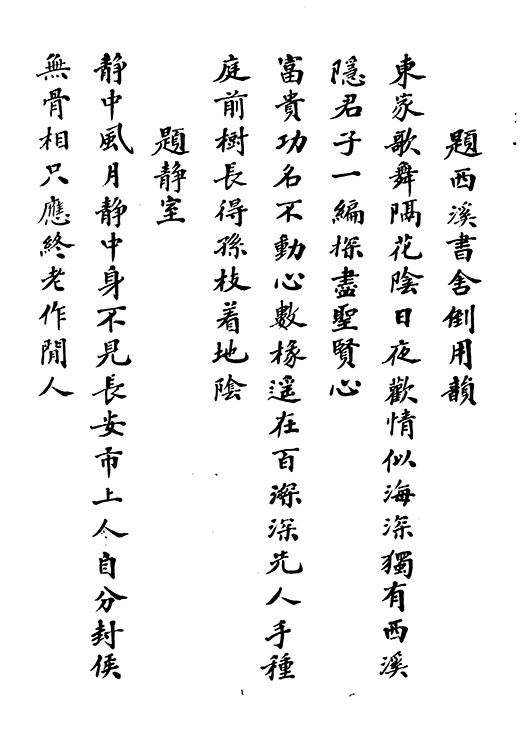 題西溪書舍倒用韻
東家歌舞隔花陰日夜歡情似海深獨有西溪
隱君子一編探盡聖賢心
富貴功名不動心數椽遥在百深深先人手種
庭前樹長得孫枝着地陰
題静室
静中風月静中身不見長安市上人自分封侯
無骨相只應終老作閒人